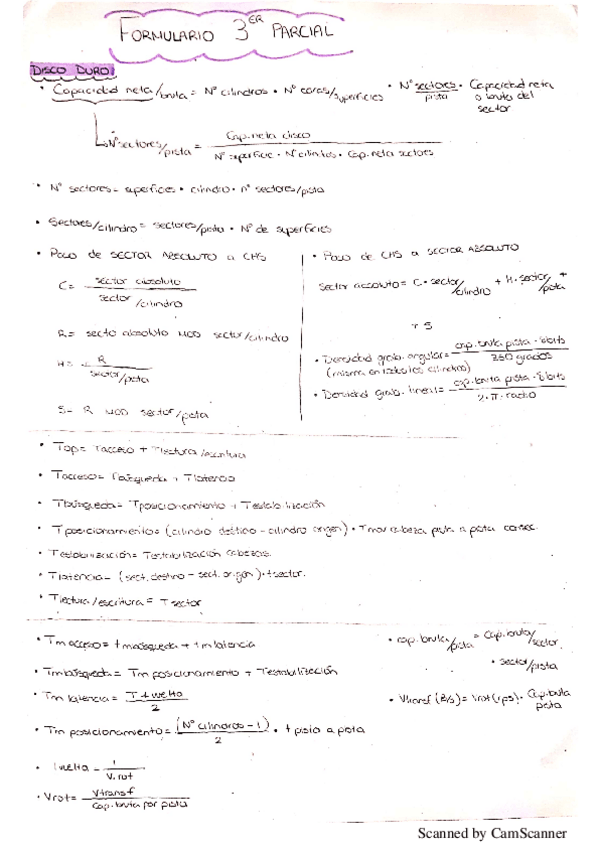 FORMULARIO 3ER PARCIAL
DISCO DURO
• Capacidad neta/bruta = Nº cilindros • Nº caras/superficies • Nº sectores/pista • Capacidad neta o bruta del sector
Nº sectores/pista = Cap. neta disco / Nº superficie • Nº cilindros • Cap. neta sectores
• Nº sectores = superficies • cilindro • nº sectores/pista
• Sectores/cilindro = sectores/pista • Nº de superficies
• Paso de SECTOR ABSOLUTO a CHS
C = sector absoluto / sector/cilindro
R = secto absoluto MOD sector/cilindro
H = R / sector/pista
S = R MOD sector/pista
• Paso de CHS a SECTOR ABSOLUTO
Sector absoluto = C • sector/cilindro + H • sector/pista +
+ S
• Densidad grab. angular = cap. bruta pista • 8bits / 360 grados
(misma en todos los cilindros)
• Densidad grab. lineal = cap. bruta pista • 8bits / 2 • π • radio
• Top = Tacceso + Tlectura/escritura
• Tacceso = Tbúsqueda + Tlatencia
• Tbúsqueda = Tposicionamiento + Testabilización
• Tposicionamiento = (cilindro destino - cilindro origen) • Tmov cabeza pista a pista consec.
• Testabilización = Testabilización cabezas.
• Tlatencia = (sect. destino - sect. origen) • tsector.
• Tlectura/escritura = Tsector
• Tm acceso = tm búsqueda + tm latencia
• Tm búsqueda = Tm posicionamiento + Testabilización
• Tm latencia = T1vuelta / 2
• Tm posicionamiento = (Nº cilindros - 1) / 2 • t pista a pista
• 1vuelta = 1 / V.rot
• Vrot = Vtransf / Cap. bruta por pista
• cap. bruta/pista = cap. bruta/sector • sector/pista
• Vtransf (B/s) = Vrot (rps) • Cap. bruta pista
Scanned by CamScanner